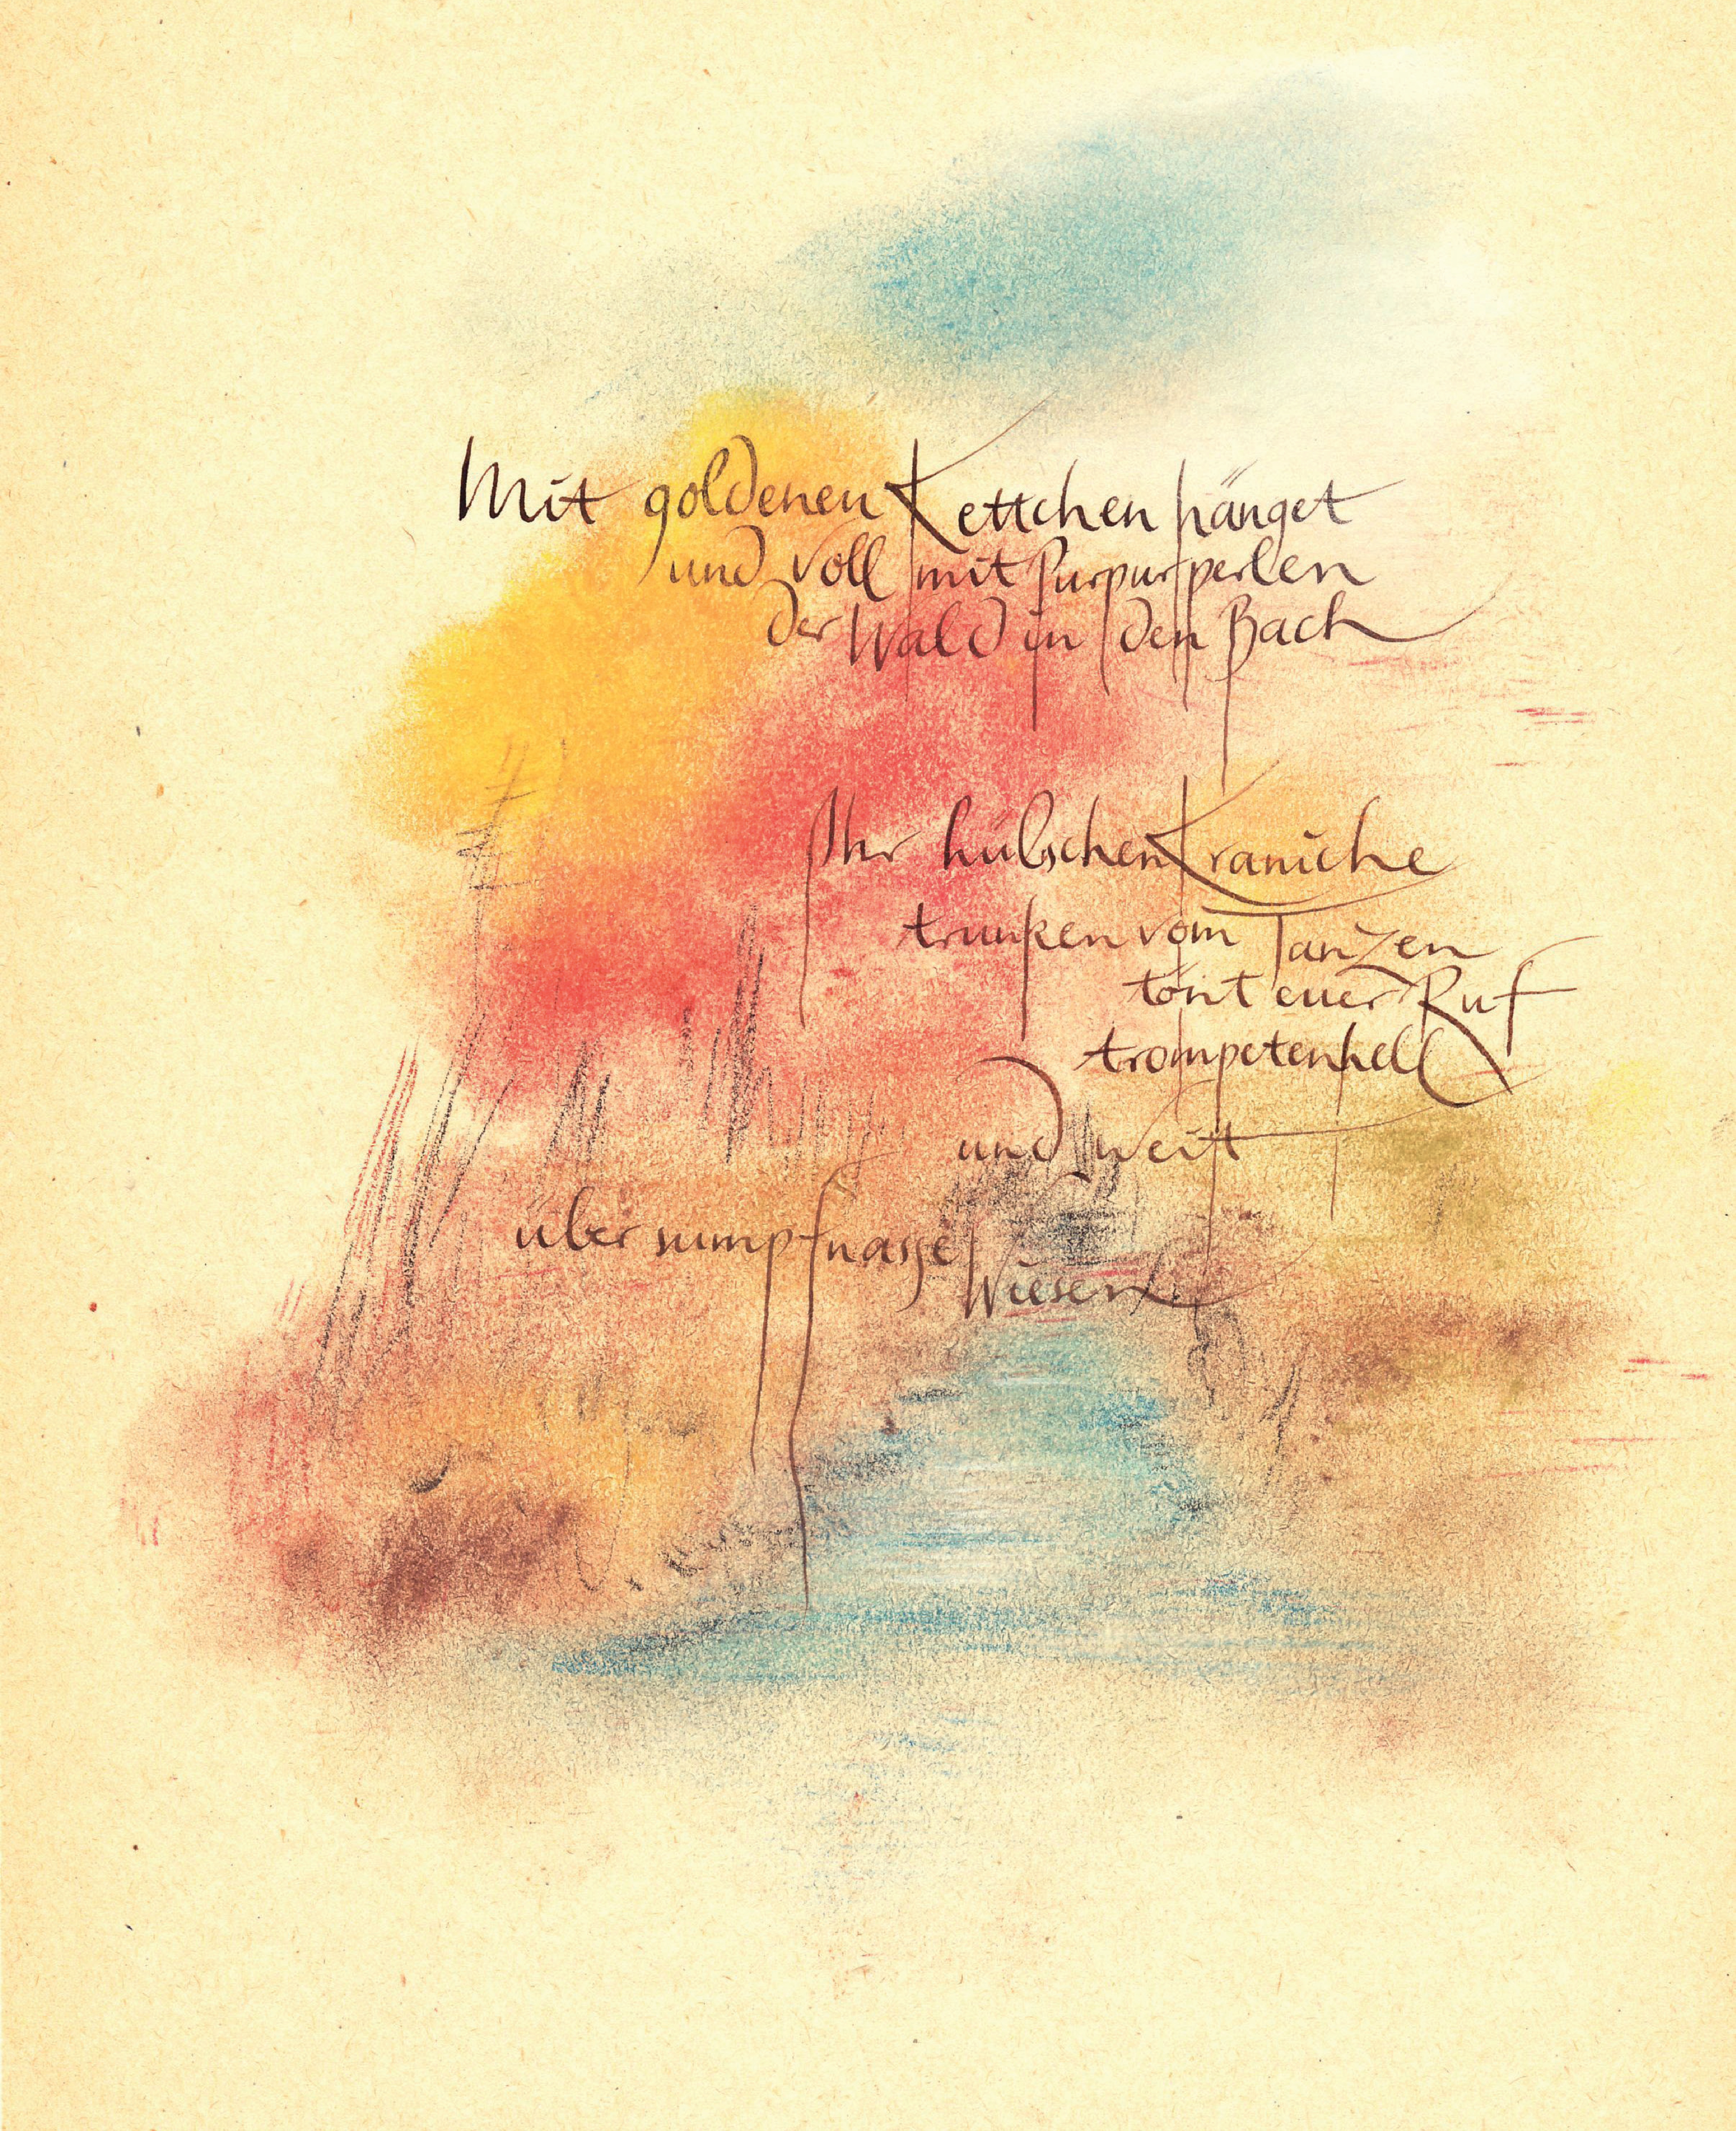 Mit goldenen Kettchen hänget
und voll mit Purpurperlen
der Wald in den Bach
Ihr hübschen Kraniche
trunken vom Tanzen
tönt euer Ruf
trompetenhell
und weit
über sumpfnasse
Wiesen